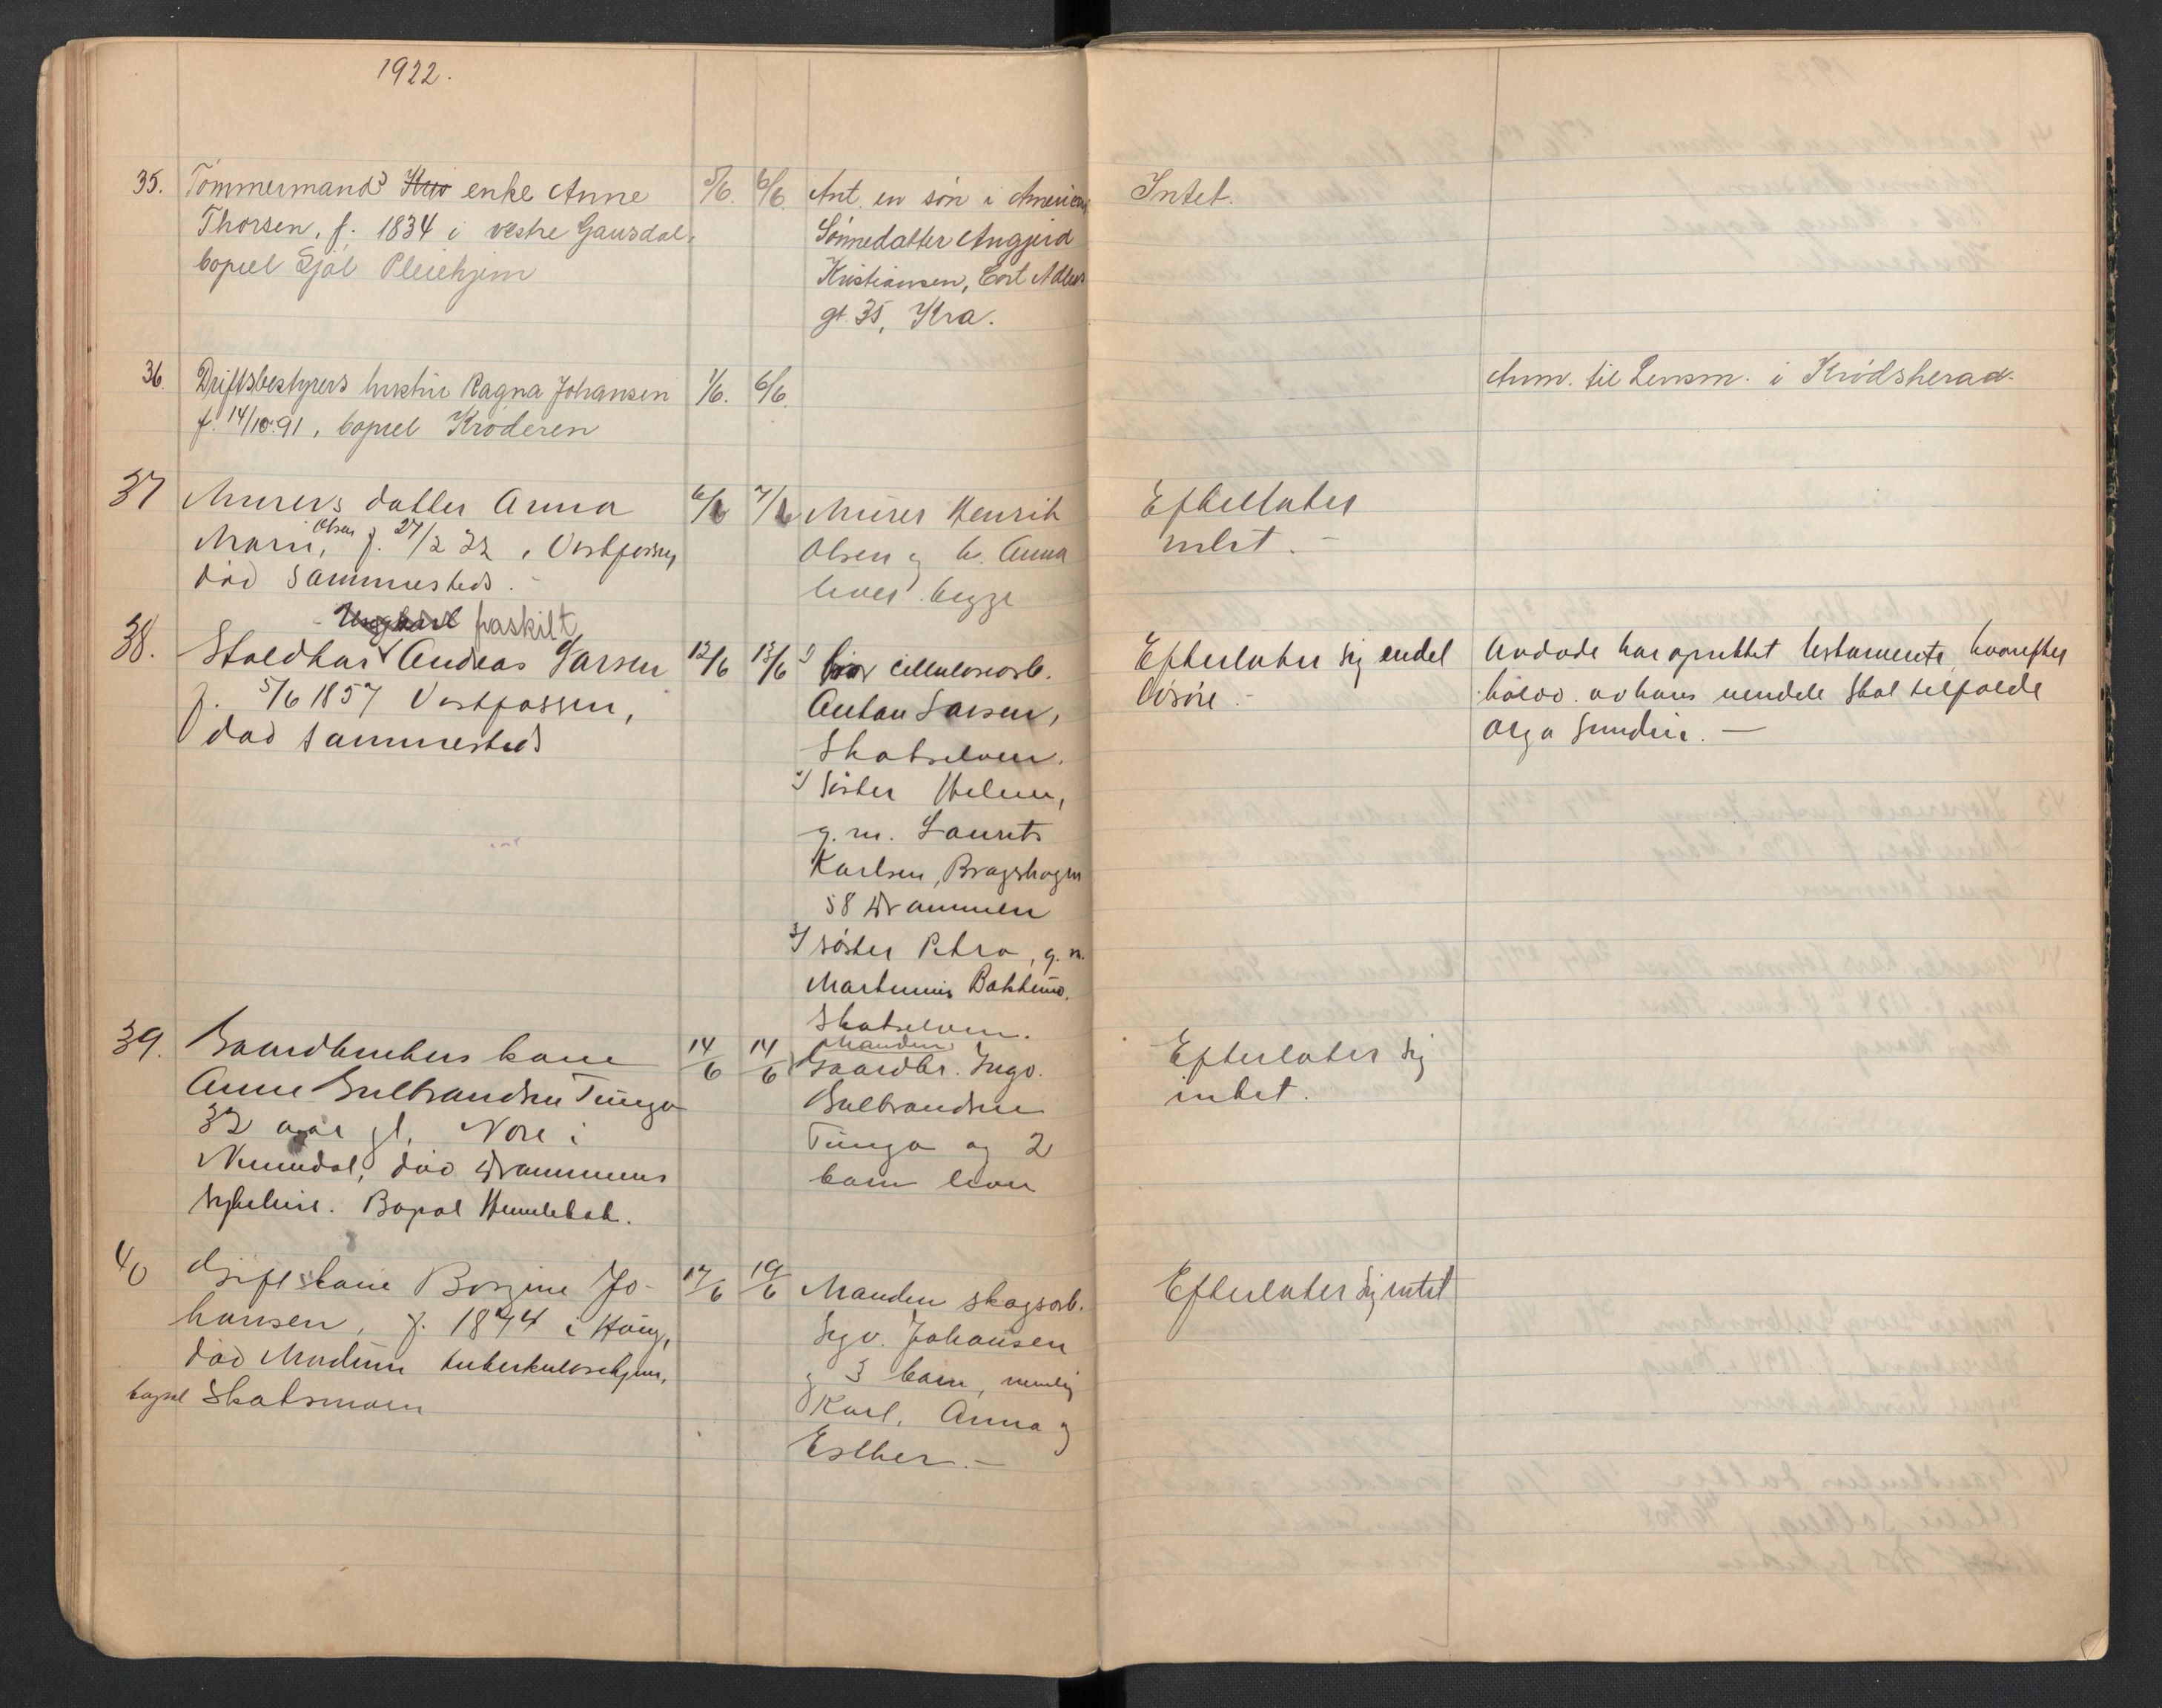 1922.
35. Tømmermand enke Anne 5/6. 6/6. Ant. en søn i Amerika, Intet.
Thorsen, f. 1834 i vestre Gausdal, Sønnedatter Angjerd
bopæl Sjøl Pleiehjem Kristiansen, Cort Adlers
gt. 35, Kra.
36 Driftsbestyrers hustru Ragna Johansen 1/6. 6/6. Anm. til Lensm. i Krødsherad.
f. 14/10.91, bopæl Krøderen
37 Murers datter Anna 6/6 7/6 Murer Henrik Efterlater
Marie, Olsen f. 27/2 22, Vestfossen, Olsen og h. Anna intet. -
død sammesteds. - lever begge
fraskilt
38. Staldkar Andreas Larsen 12/6 13/6 1/ bror cellulosearb. Efterlater sig endel Avdøde har oprettet testamente, hvorefter
f. 5/6 1857 Vestfossen, Anton Larsen, løsøre. - halvd. av hans eiendele skal tilfalde
død sammesteds Skotselven. Olga Sundin. -
2/ Søster Helene,
g. m. Laurits
Karlsen, Bragshagen
58 Drammen
3/ søster Petra, g. m.
Martinius Bakstuño,
Skotselven.
39. Gaardbrukers kone 14/6 14/6 Manden Gaardbr. Ingv. Efterlater sig
Anne Gulbrandsen Tunga Gulbrandsen intet.
32 aar gl. Nore i Tunga og 2
Numedal, død Drammens barn lever
sykehus. Bopæl Hemlebak.
40 Gift kone Borgine Jo- 17/6 19/6 Manden skogsarb. Efterlater sig intet
hansen, f. 1874 i Haug, Sigv. Johansen
død Modum tuberkulosehjem, og 3 barn, nemlig
bopæl Skotsmoen Karl, Anna og
Esther. -